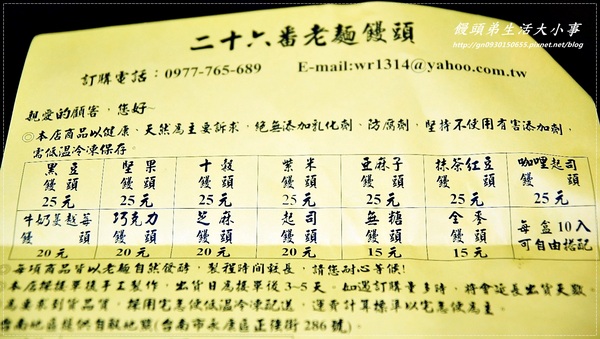 饅頭弟生活大小事
http://gn0930150655.pixnet.net/blog
二十六番老麵饅頭
訂購電話：0977-765-689 E-mail:wr1314@yahoo.com.tw
親愛的顧客，您好~
◎本店商品以健康、天然為主要訴求，絕無添加乳化劑、防腐劑，堅持不使用有害添加劑，
需低溫冷凍保存。
黑豆 堅果 十穀 紫米 亞麻子 抹茶紅豆 咖哩起司
饅頭 饅頭 饅頭 饅頭 饅頭 饅頭 饅頭
25元 25元 25元 25元 25元 25元 25元
牛奶蔓越莓 巧克力 芝麻 起司 無糖 全麥 每盒10入
饅頭 饅頭 饅頭 饅頭 饅頭 饅頭 可自由搭配
20元 20元 20元 20元 15元 15元
◎每項商品皆以老麵自然發酵，製程時間較長，請您耐心等候！
◎本店採接單後手工製作，出貨日為接單後3~5天。如遇訂購量多時，將會延長出貨天數。
為產季到貨品質，採用宅急便低溫冷凍配送，運費計算標準以宅急便為主。
台南地區提供自取地點(台南市永康區正強街286號)。